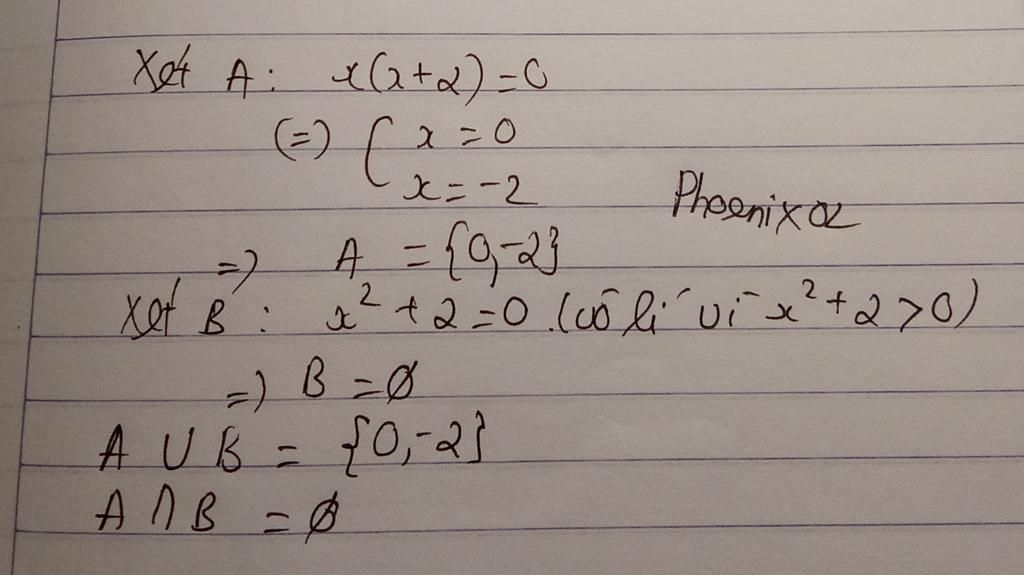 Xét A: x(x+2)=0
(=) { x = 0
x = -2
Phoenixoz
=) A = {0,-2}
Xét B: x² + 2 = 0. (vô lí vì x² + 2 > 0)
=) B = ∅
A ∪ B = {0,-2}
A ∩ B = ∅